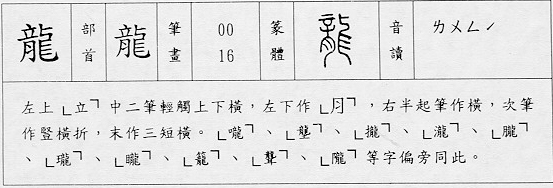 龍 部首 龍 筆畫 00 16 篆體 龍 音讀 ㄌㄨㄥˊ
左上⌞立⌝中二筆輕觸上下橫，左下作⌞⺝⌝，右半起筆作橫，次筆
作豎橫折，末作三短橫。⌞嚨⌝、⌞壟⌝、⌞攏⌝、⌞瀧⌝、⌞朧⌝
、⌞瓏⌝、⌞矓⌝、⌞籠⌝、⌞聾⌝、⌞隴⌝等字偏旁同此。